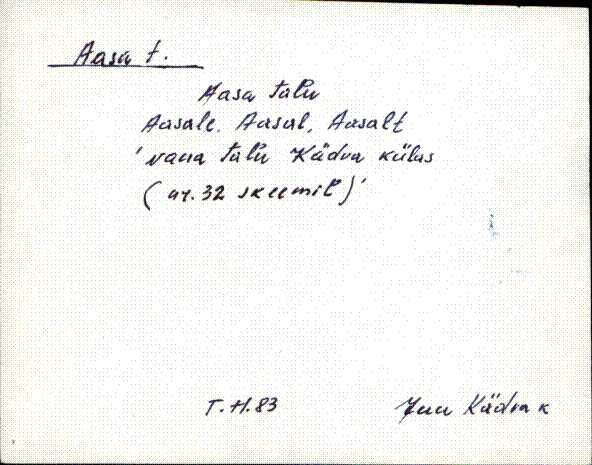 Aasa t.
Aasa talu
Aasale, Aasal, Aasalt
'vana talu Kädva külas
(nr. 32 skeemil)'
T.H.83
Juu Kädva k